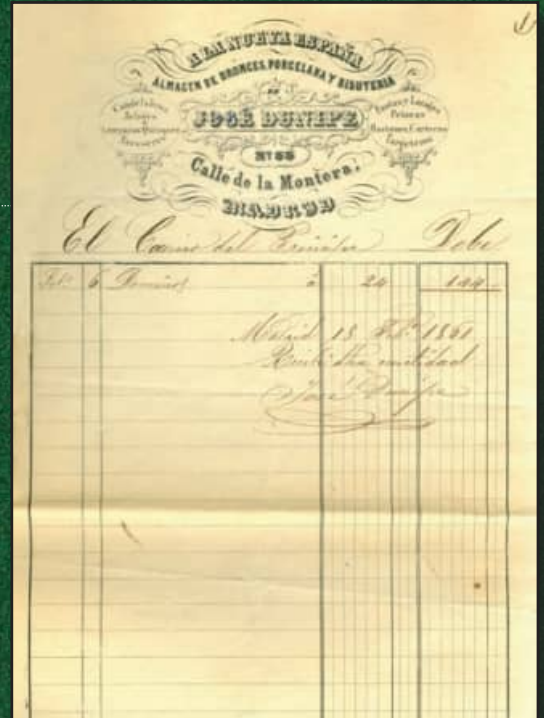 A LA NUEVA ESPAÑA
ALMACEN DE BRONCES PORCELANA Y BISUTERIA
DE
JOSÉ DUNIPE
Nº 33
Calle de la Montera,
MADRID
El Casino del Debe
Feb. 6 Dominos á 24 144
Madrid 18 Feb. 1861
Recibí dha cantidad
José Dunipe